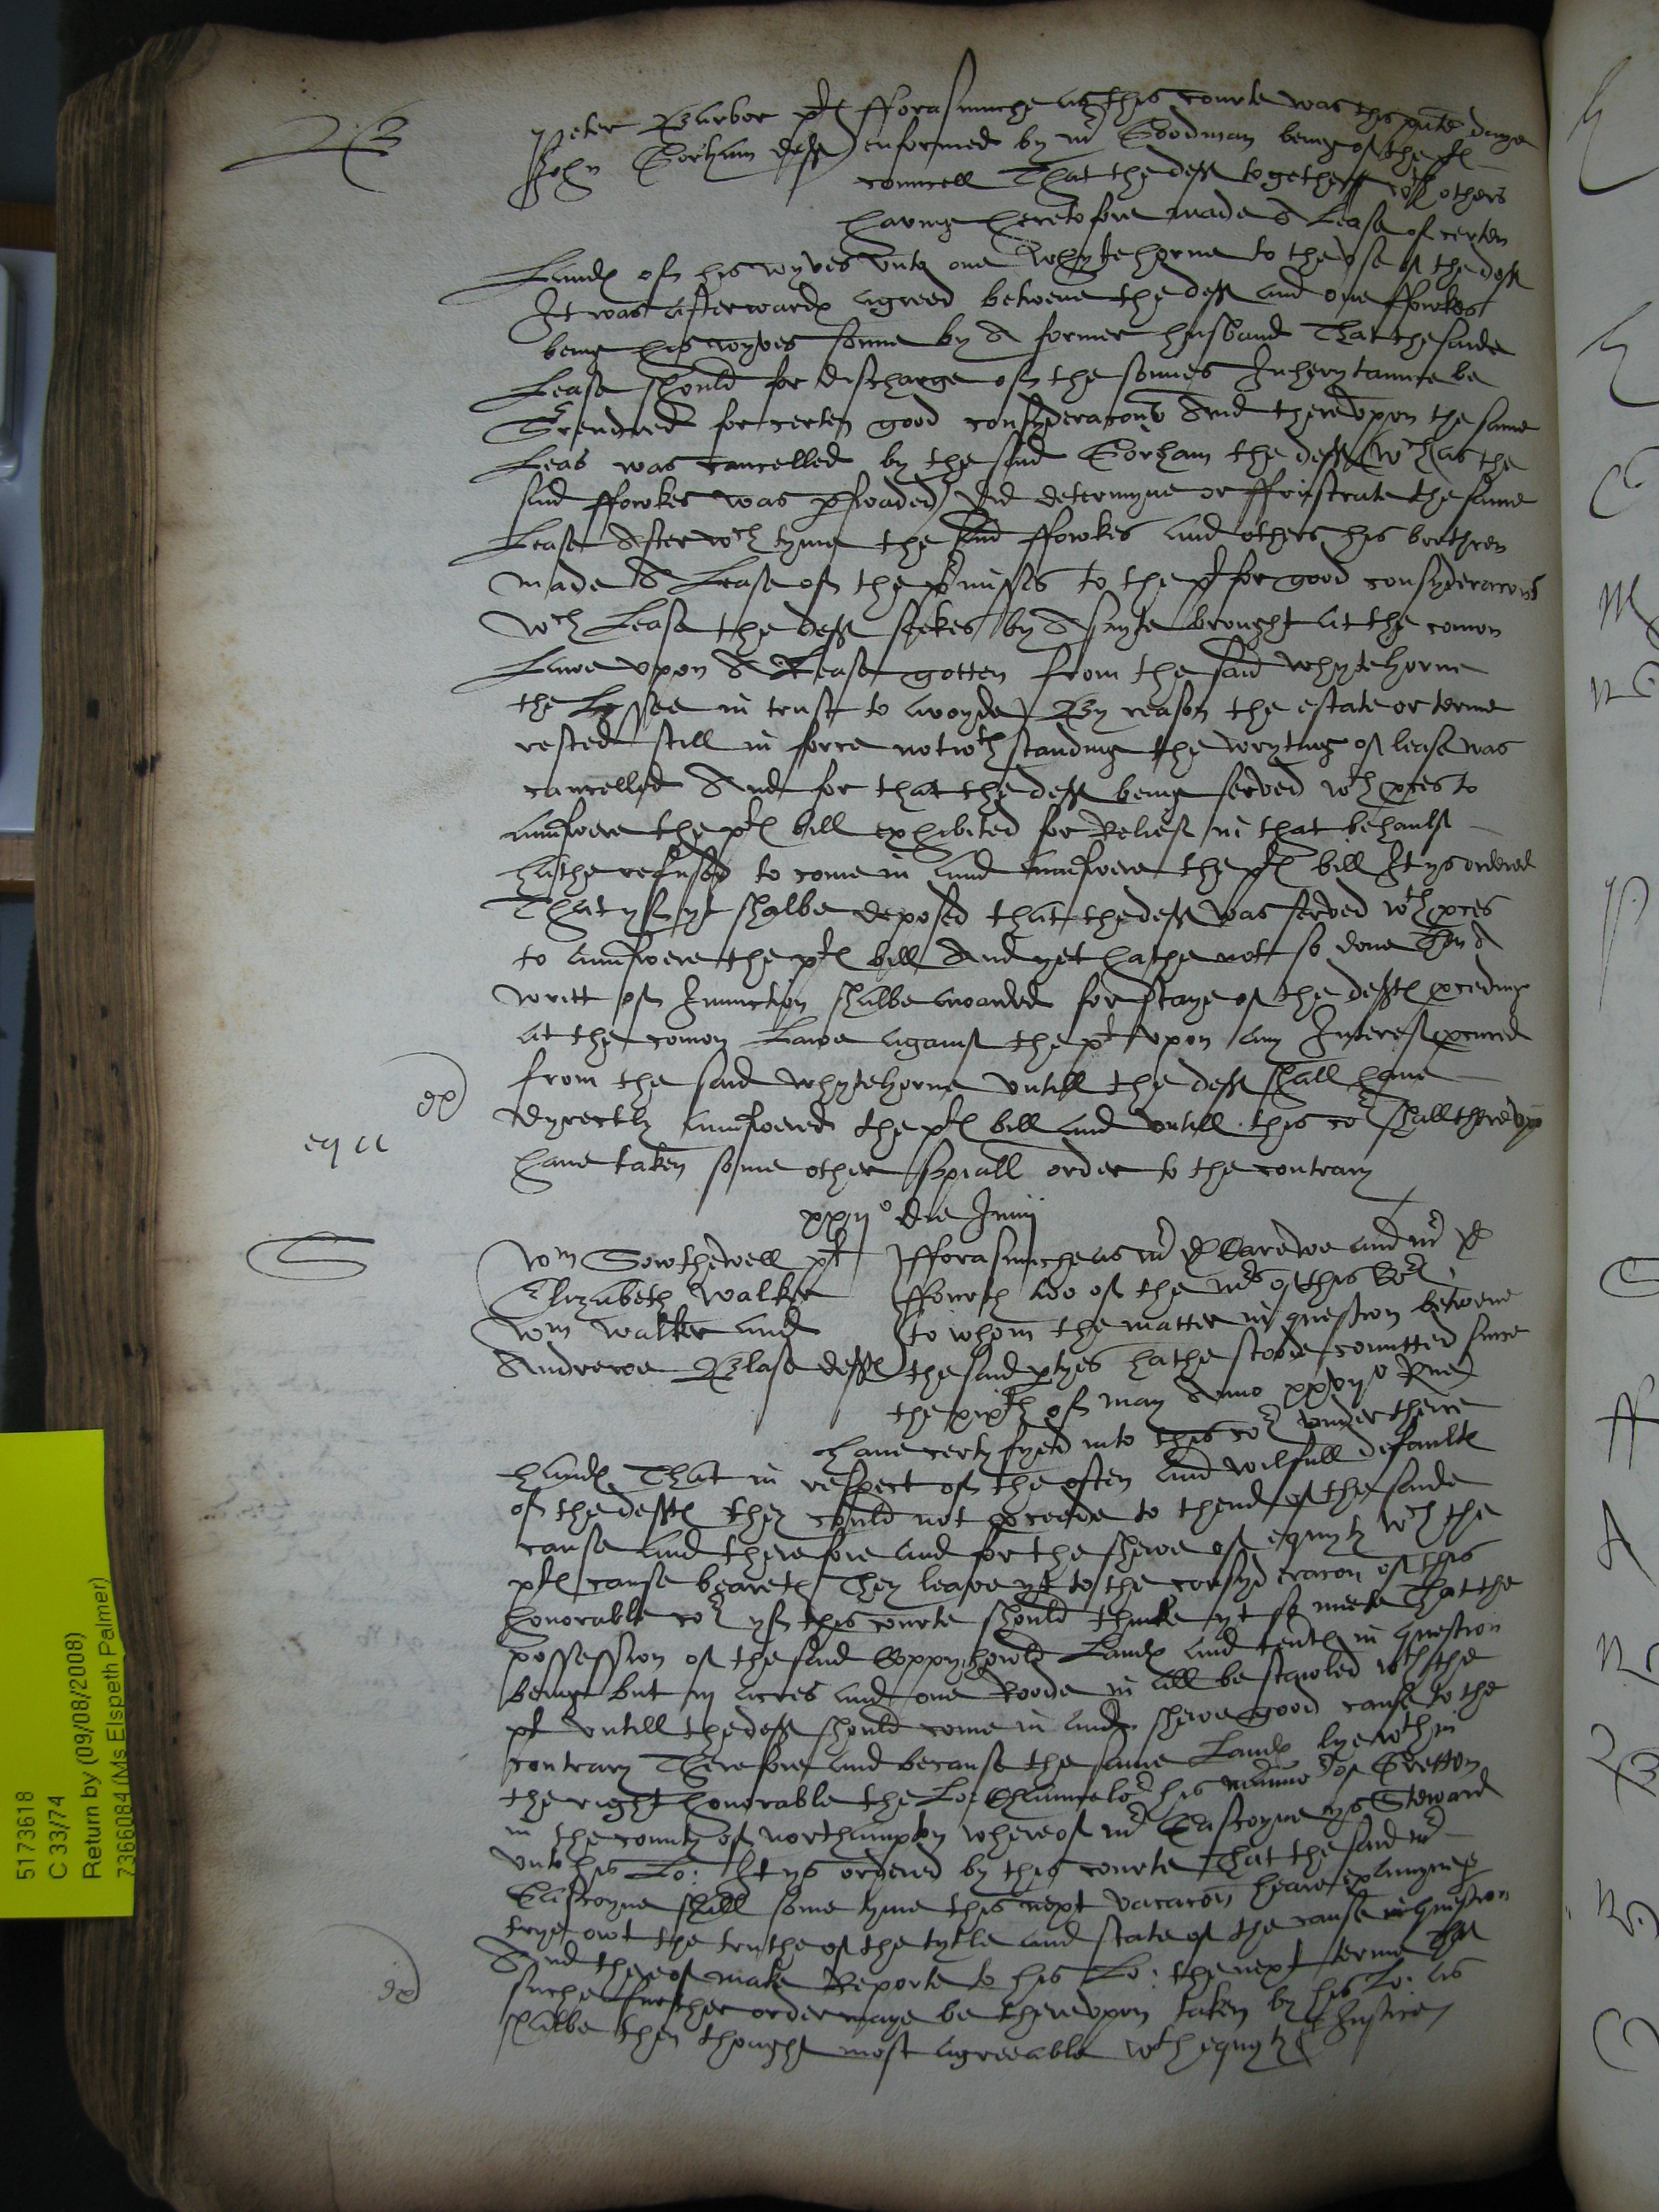 B
Peter Barbor plt fforasmuche as this courte was this pnte daye
John Gorham deft enformed by mr Goodman being of the plts
councell That the deft together wth others
having heretofore made A Lease of certen
Landes of his wyves unto one Whytehorne to the use of the deft
It was afterwardes agreed betwene the deft and one ffowkes
being his wyves sonne by A former husband That the saide
Lease should for discharge of the sonnes Inherytaunce be
Srendred for certen good consyderacons And thereupon the same
Leas was cancelled by the said Gorham the deft (wch as the
said ffowkes was pswaded) did determyne or ffrustrate the same
Lease After wch tyme the said ffowkes and others his brethren
made A Lease of the pmisses to the plt for good consyderacons
wch Lease the deft seekes by A suyte brought at the comon
Lawe upon A Lease gotten from the said Whytehorne
the Lessee in trust to avoyde By reason the estate or terme
rested still in force notwthstanding the wryting of lease was
cancelled And for that the deft being served wth pces to
aunswere the plts bill exhibited for Relief in that behaulf
hathe refused to come in and aunswere the plts bill It ys ordered
That yf yt shalbe deposed that the deft was served wth pces
to aunswere the plts bill And yet hathe not so done Then A
writt of Iniunction shalbe awarded for staye of the defts pceding
at the comon Lawe against the plt upon any Interest pcured
from the said Whytehorne untill the deft shall have
dyrectly aunswered the plts bill and untill this cot shall thereupon
have taken some other speciall order to the contrary
ex
eq a
xxiio die Junij
S
Wm Sowthewell plt fforasmuche as mr D Carewe and mr D
Elizabeth Walker fforth two of the mrs of this Cot
Wm Walker and to whom the matter in question betwene
Andrewe Blase defts the said ptyes hathe stoode comitted since
the xixth of may Anno xxviio Rne
have certyfyed into this cot under there
handes That in respect of the often and wilfull defaultes
of the defts they could not pceede to thend of the saide
cause and therefore and for the shewe of equyty wch the
plts cause beareth They leave yt to the consyderacon of this
honorable cot yf this courte should thinke yt so mete That the
possession of the said Coppyhould Landes and tents in question
being but iij acres and one Roode in all be stawled wth the
plt untill the deft should come in and shewe good cause to the
contrary Therefore and because the same Landes lye wthin
the right honorable the Lo: Chauncelor his mannor of Gretton
in the county of northampton whereof mr Gascoyne ys Steward
unto his Lo: It ys ordered by this courte That the said mr
Gascoyne shall some tyme this next vacacon heare examyne &
trye owt the truthe of the tytle and state of the cause in question
And thereof make Reporte to his Lo: the next terme That
suche further order maye be thereupon taken by his Lo: as
shalbe then thought most agreeable wth equyty & Justice
ex
5173618
C 33/74
Return by (09/08/2008)
7366084 (Ms Elspeth Palmer)